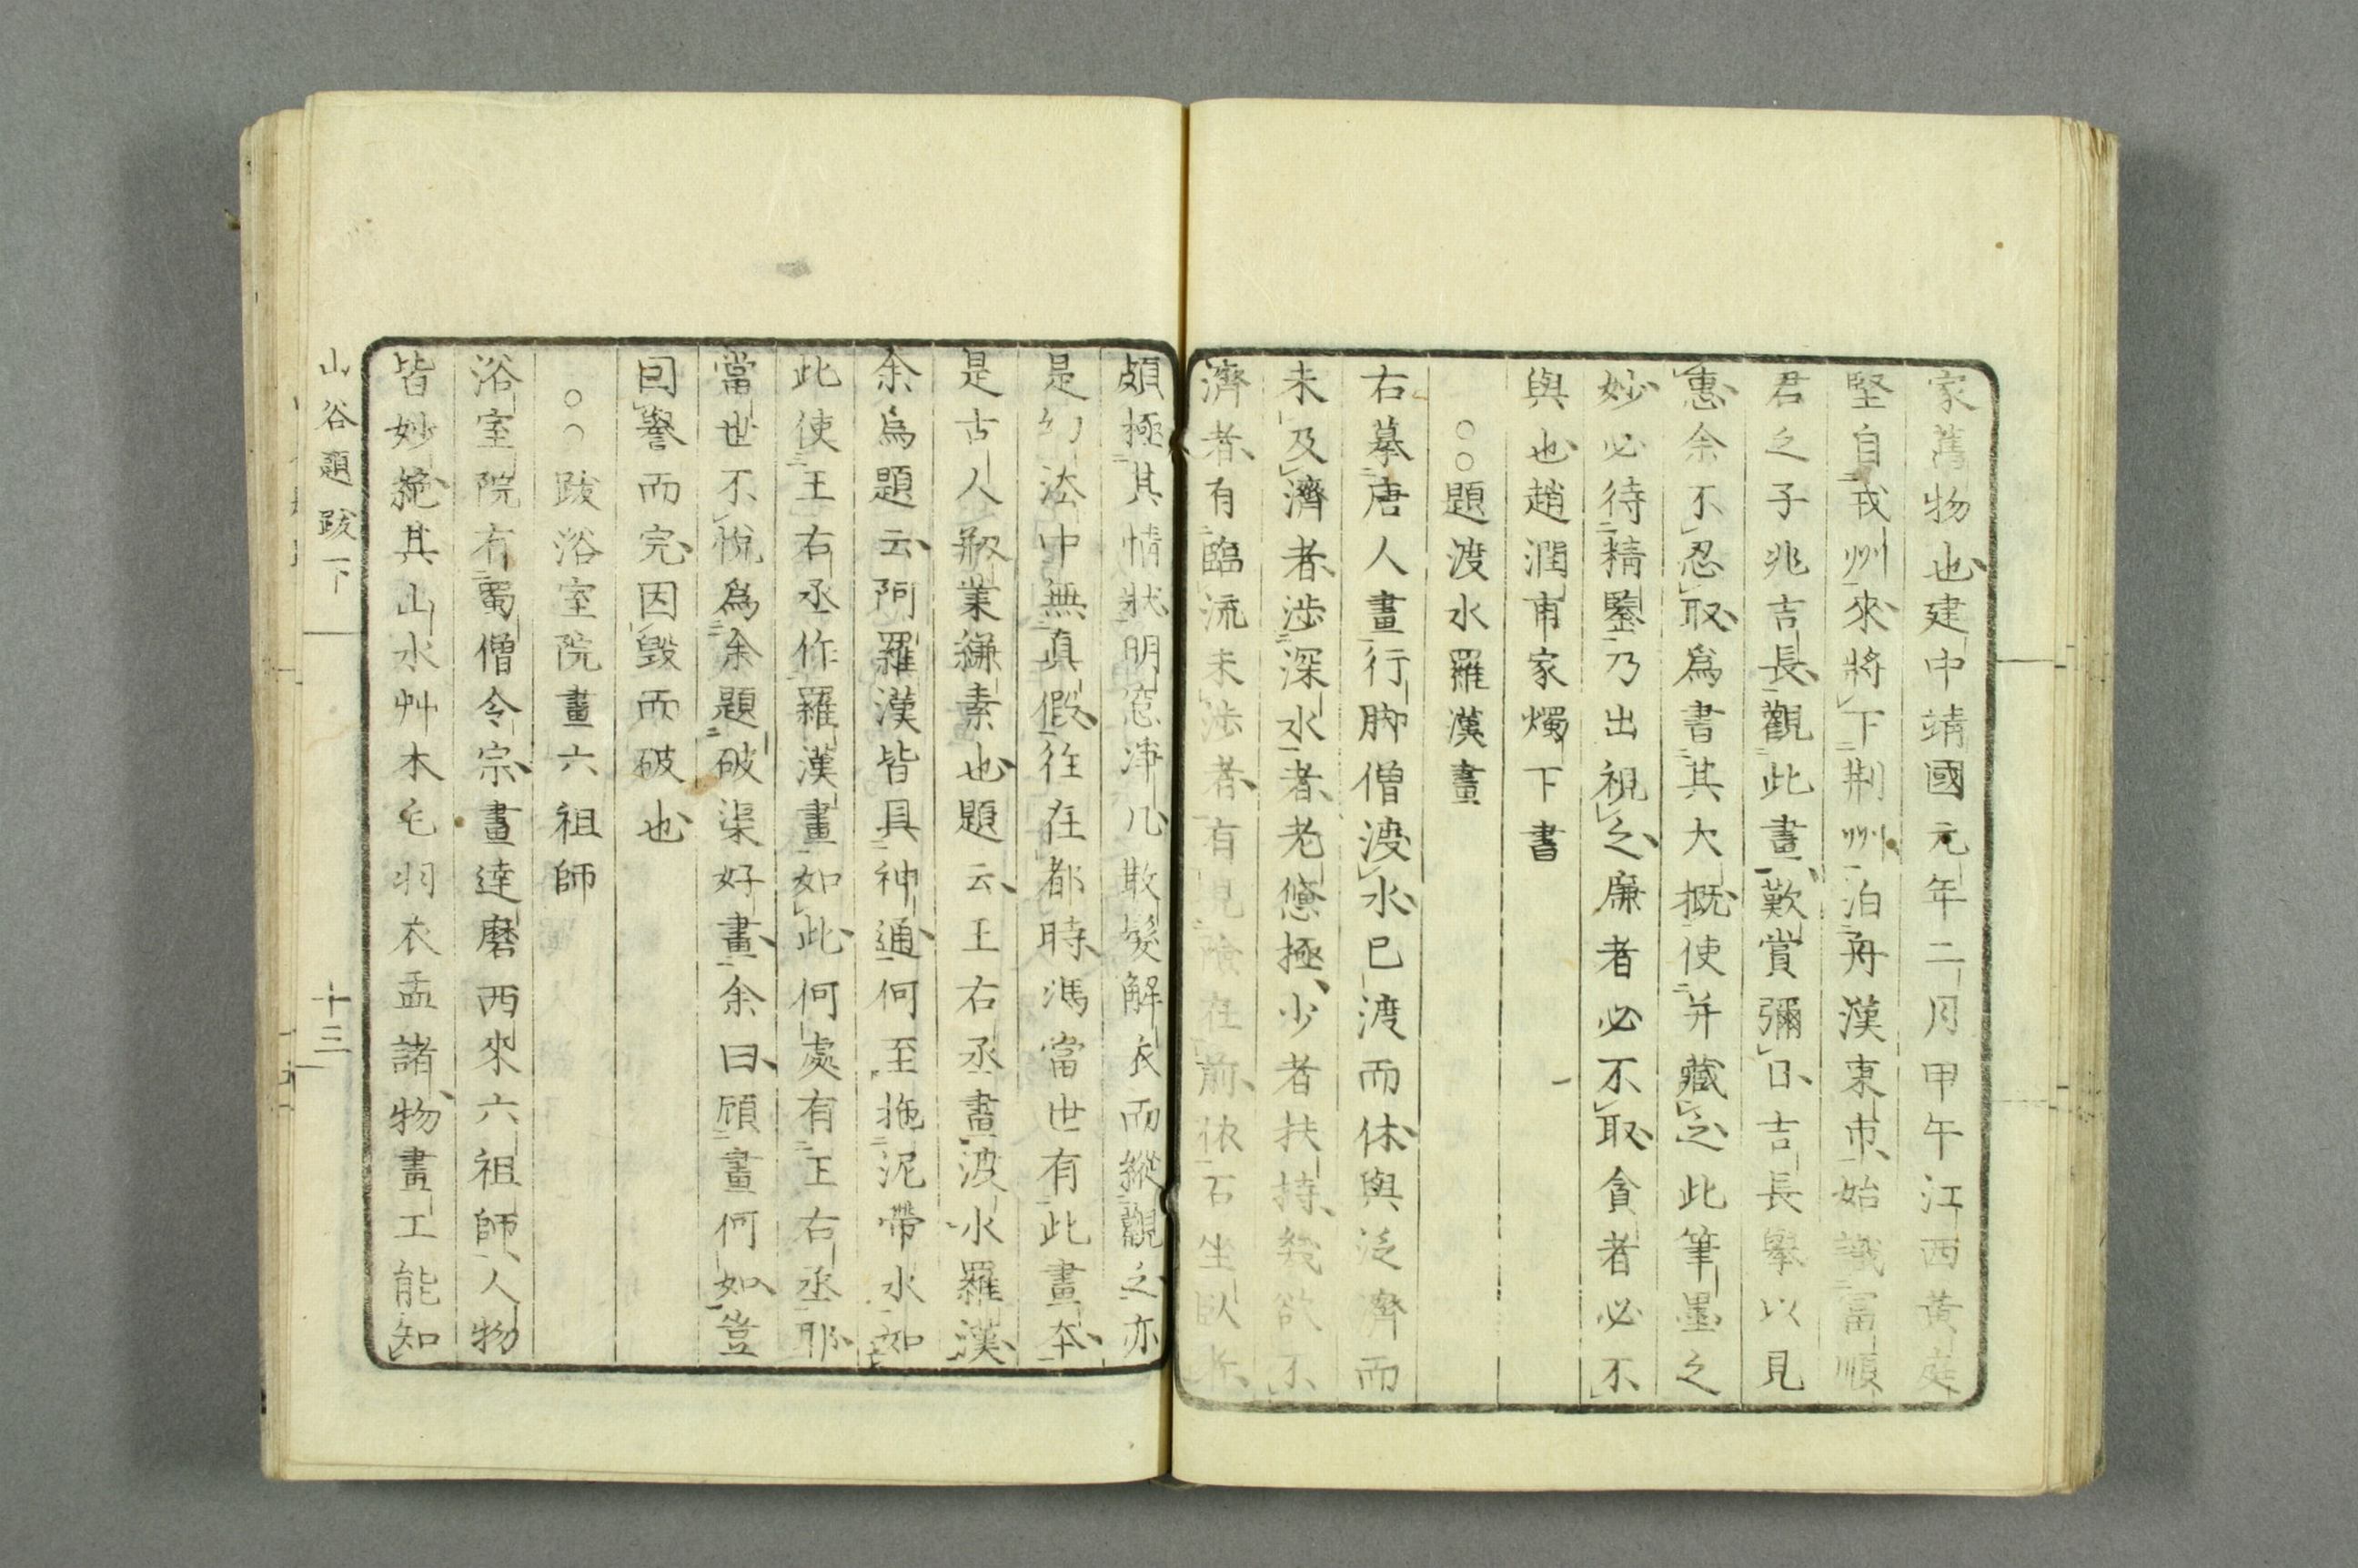 家舊物也建中靖國元年二月甲午江西黃庭
堅自戎州來將下荆州泊舟漢東市始識富順
君之子兆吉長觀此畫歎賞彌日吉長舉以見
惠余不忍取爲書其大概使并藏之此筆墨之
妙必待精鑒乃出視之廉者必不取貪者必不
與也趙潤甫家燭下書
○○題渡水羅漢畫
右摹唐人畫行脚僧渡水已渡而休與泛濟而
未及濟者涉深水者老憊極少者扶持幾欲不
濟者有臨流未涉者有見險在前依石坐臥者
頗極其情狀明窓净几散髮解衣而縱觀之亦
是幻法中無真假往在都時馮當世有此畫本
是古人骸業縑素也題云王右丞畫波水羅漢
余爲題云阿羅漢皆具神通何至拖泥帶水如
此使王右丞作羅漢畫如此何處有王右丞耶
當世不悅爲余題破渠好畫余曰頋畫何如豈
因譽而完因毀而破也
○○跋浴室院畫六祖師
浴室院有蜀僧令宗畫達磨西來六祖師人物
皆妙絶其山水艸木毛羽衣盂諸物畫工能知
山谷題跋下
十三